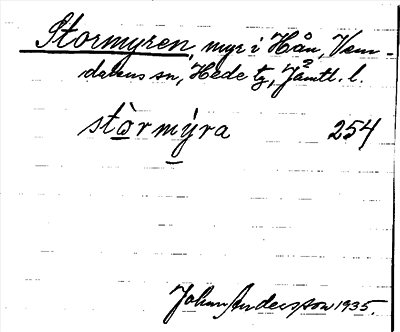 Stormyren, myr i Hån, Vem-
dalens sn, Hede tg, Jämtl. l.
stòrmýra 254
Johan Andersson 1935.